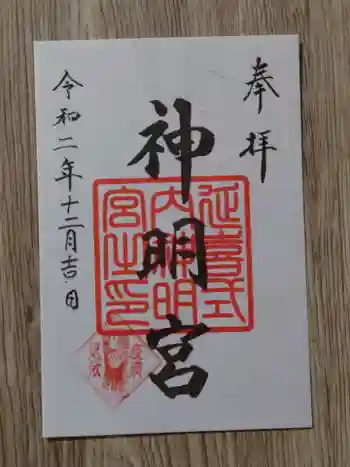 奉拝
延喜式
内神明
宮之印
神明宮
令和二年十二月吉日